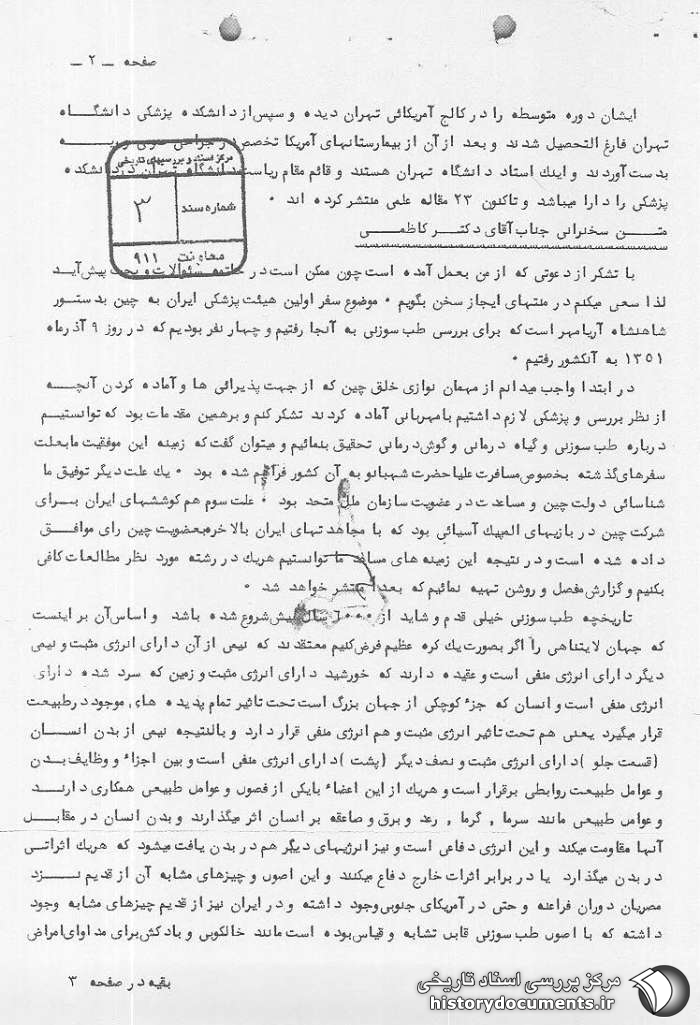 صفحه ــ ٢ ــ
ایشان دوره متوسطه را در کالج آمریکائی تهران دیده و سپس از دانشکده پزشکی دانشگاه
تهران فارغ التحصیل شدند و بعد از آن از بیمارستانهای آمریکا تخصص در جراحی
بدست آوردند و اینک استاد دانشگاه تهران هستند و قائم مقام ریاست دانشگاه تهران در دانشکده
پزشکی را دارا میباشد و تاکنون ٢٣ مقاله علمی منتشر کرده اند ٠
مرکز اسناد و بررسیهای تاریخی
شماره سند
٣
معاونت ٩١١
متن سخنرانی جناب آقای دکتر کاظمی
با تشکر از دعوتی که از من بعمل آمده است چون ممکن است در خاتمه سئوالات و بحث پیش آید
لذا سعی میکنم در منتهای ایجاز سخن بگویم ٠ موضوع سفر اولین هیئت پزشکی ایران به چین بدستور
شاهنشاه آریامهر است که برای بررسی طب سوزنی به آنجا رفتیم و چهار نفر بودیم که در روز ٩ آذرماه
١٣٥١ به آنکشور رفتیم ٠
در ابتدا واجب میدانم از مهمان نوازی خلق چین که از جهت پذیرائی ها و آماده کردن آنچه
از نظر بررسی و پزشکی لازم داشتیم بامهربانی آماده کردند تشکر کنم و برهمین مقدمات بود که توانستیم
درباره طب سوزنی و گیاه درمانی و گوش درمانی تحقیق بنمائیم و میتوان گفت که زمینه این موفقیت مابعلت
سفرهای گذشته بخصوص مسافرت علیاحضرت شهبانو به آن کشور فراهم شده بود ٠ یک علت دیگر توفیق ما
شناسائی دولت چین و مساعدت در عضویت سازمان ملل متحد بود ٠ علت سوم هم کوششهای ایران برای
شرکت چین در بازیهای المپیک آسیائی بود که با مجاهدتهای ایران بالاخره بعضویت چین رای موافق
داده شده است و در نتیجه این زمینه های مساعد ما توانستیم هریک در رشته مورد نظر مطالعات کافی
بکنیم و گزارش مفصل و روشن تهیه نمائیم که بعدا منتشر خواهد شد ٠
تاریخچه طب سوزنی خیلی قدم و شاید از سال پیش شروع شده باشد و اساس آن بر اینست
که جهان لایتناهی را اگر بصورت یک کره عظیم فرض کنیم معتقدند که نیمی از آن دارای انرژی مثبت و نیمی
دیگر دارای انرژی منفی است و عقیده دارند که خورشید دارای انرژی مثبت و زمین که سرد شده دارای
انرژی منفی است و انسان که جزء کوچکی از جهان بزرگ است تحت تاثیر تمام پدیده های موجود در طبیعت
قرار میگیرد یعنی هم تحت تاثیر انرژی مثبت و هم انرژی منفی قرار دارد و بالنتیجه نیمی از بدن انسان
(قسمت جلو) دارای انرژی مثبت و نصف دیگر (پشت) دارای انرژی منفی است و بین اجزاء و وظایف بدن
و عوامل طبیعت روابطی برقرار است و هریک از این اعضاء بایکی از فصول و عوامل طبیعی همکاری دارند
و عوامل طبیعی مانند سرما , گرما , رعد و برق و صاعقه بر انسان اثر میگذارند و بدن انسان در مقابل
آنها مقاومت میکند و این انرژی دفاعی است و نیز انرژیهای دیگر هم در بدن یافت میشود که هریک اثراتی
در بدن میگذارد یا در برابر اثرات خارج دفاع میکنند و این اصول و چیزهای مشابه آن از قدیم نزد
مصریان دوران فراعنه و حتی در آمریکای جنوبی وجود داشته و در ایران نیز از قدیم چیزهای مشابه وجود
داشته که با اصول طب سوزنی قابل تشابه و قیاس بوده است مانند خالکوبی و بادکش برای مداوای امراض
بقیه در صفحه ٣
مرکز بررسی اسناد تاریخی
historydocuments.ir